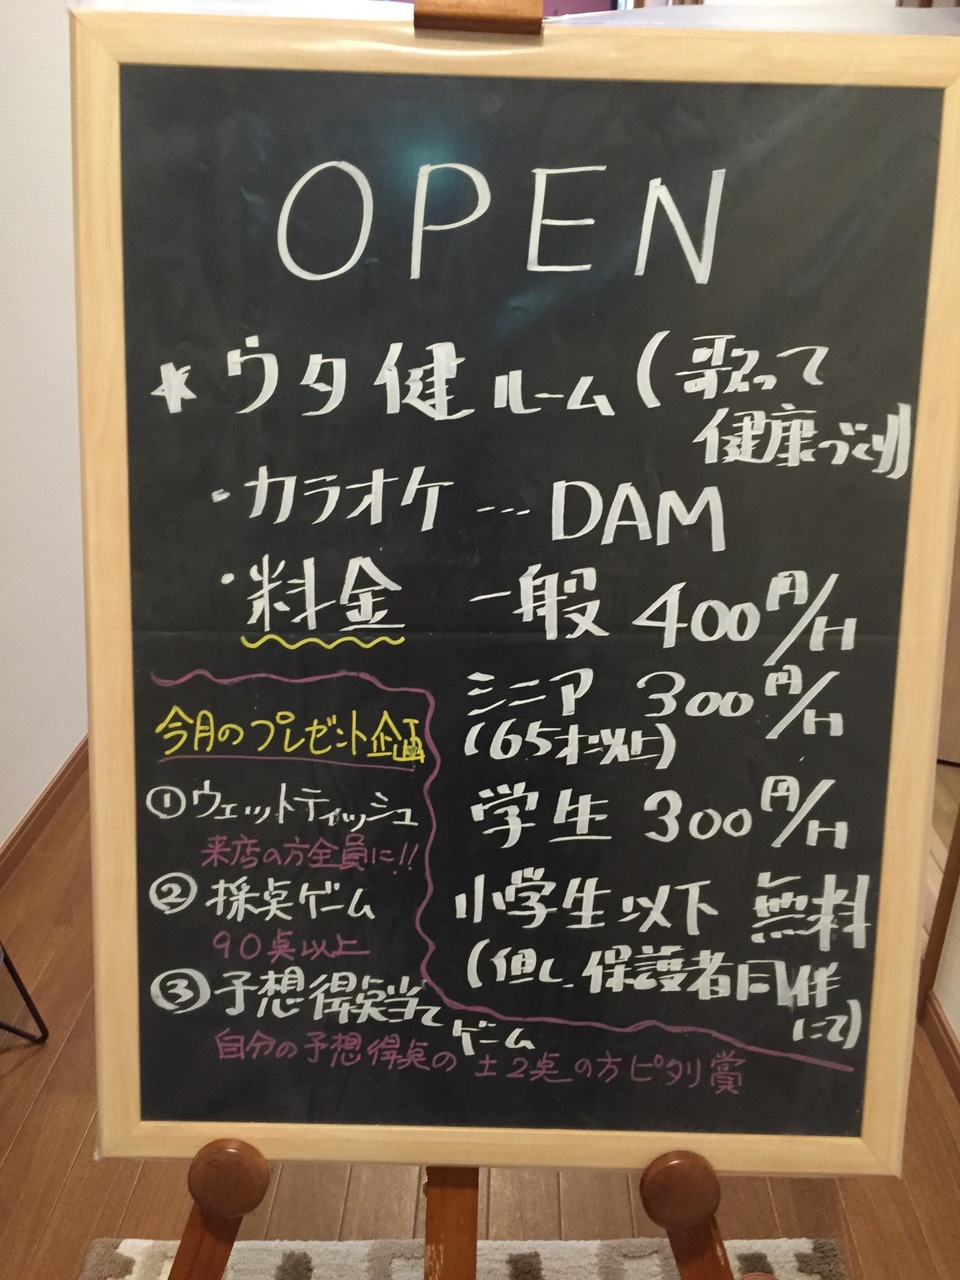 OPEN
★ウタ健ルーム(歌って
健康づくり)
・カラオケ --- DAM
・料金 一般 400円/H
シニア 300円/H
(65才以上)
学生 300円/H
小学生以下 無料
(但し、保護者同伴
にて)
今月のプレゼント企画
①ウェットティッシュ
来店の方全員に!!
②採点ゲーム
90点以上
③予想得点当て
ゲーム
自分の予想得点の±2点の方ピタリ賞